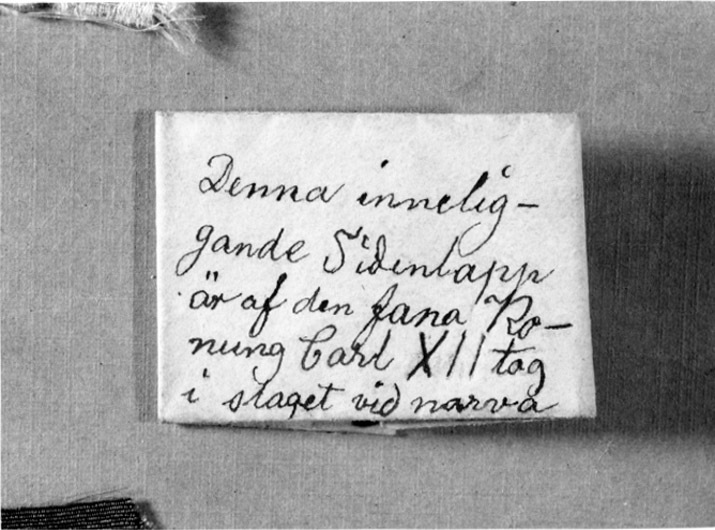 Denna innelig-
gande Sidenlapp
är af den fana Ko-
nung Carl XII tog
i slaget vid narva